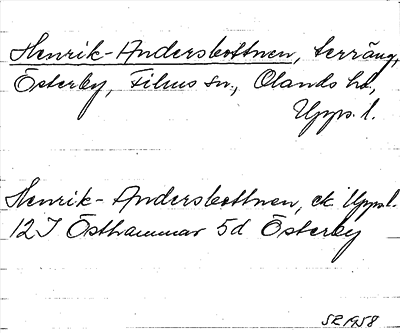 Henrik-Andersbottnen, terräng,
Österby, Films sn., Olands hd.,
Upps. l.
Henrik-Andersbottnen, ek. Upps. l.
12I Östhammar 5d Österby
SE 1958